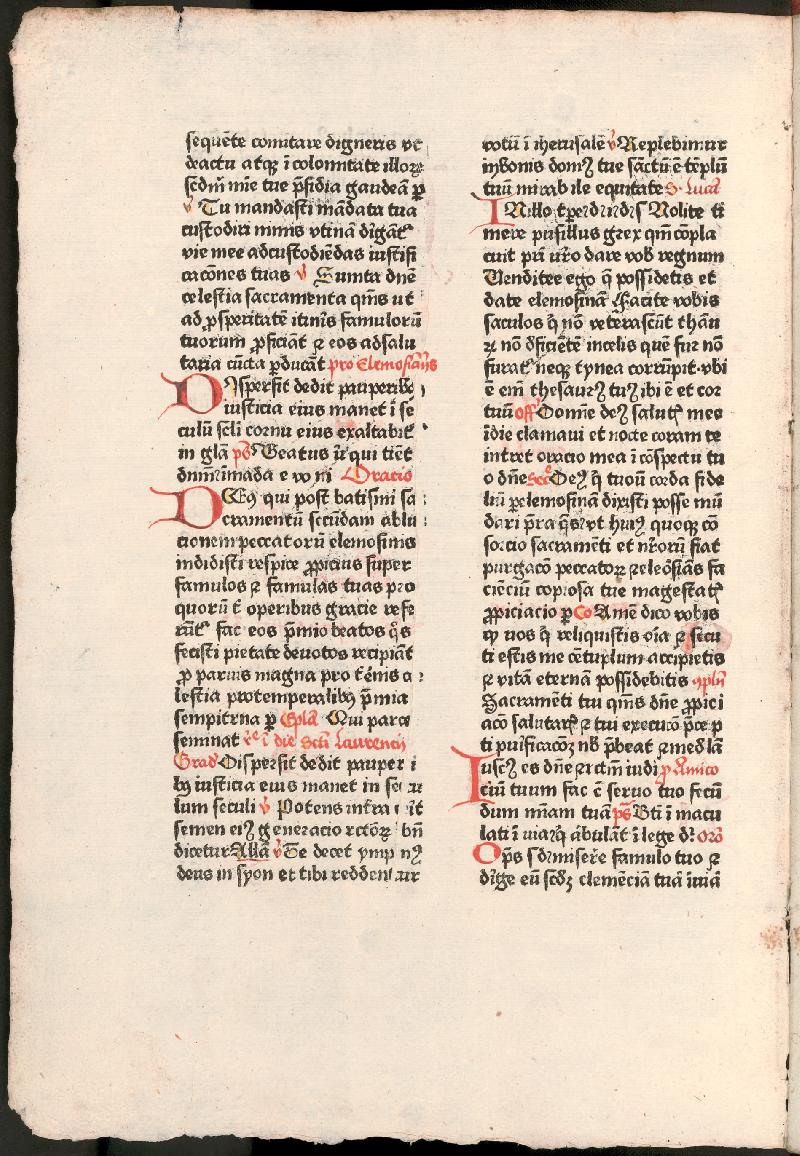 sequēte comitare digneris ut
deactu atqꝫ ī colonitate illoꝝ
scd̄m mīe tue p̄sidia gaudeā ꝑ
℣ Tu mandasti mādata tua
custodiri nimis utinā dīgāt᷑
vie mee adcustodiēdas iustifi
cacōnes tuas ℣ Sumta dn̄e
celestia sacramenta qm̄s ut
ad ꝓsperitatē itinīs famulorū
tuorum ꝓficiāt ⁊ eos adsalu
taria cūcta ꝑducāt pro Elemosiāīs
DIspersit dedit pauperibꝰ
iusticia eius manet ī se
culū scl̄i cornu eius exaltabit᷑
in gl̄a ps̄ Beatus ur̄ qui tiēt
dnm̄ imāda Oracio
DEꝰ qui post batismi sa
cramentū secūdam ablu
cionem peccatorū elemosinis
indidisti respice ꝓpicius super
famulos ⁊ famulas tuas pro
quorū t̄ operibus gracie refe
rūt᷑ fac eos p̄mio beatos q̄s
fecisti pietate deuotos recipiāt
ꝓ paruis magna pro t̄ēnis ce
lestia protemperalibꝫ p̄mia
sempitrna ꝑ Epl̄a Qui parce
seminat ī die Scti Laurencij
Grad᷑ Dispersit dedit pauperi
bꝫ iusticia eius manet in secu
lum seculi ℣ Potens intra erit
semen eiꝰ generacio rctōꝝ bn̄
dicetur All̄a ℣ Te decet ympnꝰ
deus in syon et tibi reddentur
votū ī iherusalē ℣ Replebimur
inbonis domꝰ tue sāctū ē tēplū
tuū mirabile equitate S. Lucā
INillo tꝑe dīx̄ ihs̄ discipulis Nolite ti
mere pusillus grex qm̄ cōpla
cuit pr̄i ur̄o dare vob regnum
Uenditee ergo q̄ possidetis et
date elemosinā Facite vobis
saculos q̄ nō veterascūt thāu
ꝝ nō dficiētē incelis quē fur nō
furat᷑ neqꝫ tynea corrūpit vbi
ē em̄ thesaurꝰ tuꝰ ibi ē et cor
tuū off᷑ Domīe deꝰ salutꝭ mee
īdie clamaui et nocte coram te
intret oracio mea ī cōspectu tu
o dn̄e sec̄ Deꝰ q̄ tuoū corda fide
liū ꝑelemosinā dixisti posse mū
dari pr̄a q̄s ut huiꝰ quoqꝫ cō
sorcio sacramēti et nr̄orū fiat
purgacō peccatoꝝ ⁊ eleōsīas fa
ciēciū copiosa tue magestatꝭ
ꝓpiciacio ꝑ Co Amē dico vobis
qꝫ uos q̄ reliquistis oīa ⁊ secu
ti estis me cētuplum accipietis
⁊ vitā eternā possidebitis ꝯpl̄n̄
Sacramēti tui qm̄s dn̄e ꝓpici
acō salutarꝭ ⁊ tui execucō p̄ce p
ti puificacoꝫ nb̄ p̄beat ⁊ med̄lā
Iustꝰ es dn̄e ⁊ rctm̄ iudi ꝓ Amico
cīū tuum fac ē seruo tuo secū
dum mīam tuā ps̄ Bti ī macu
lati ī uia q̄ abulāt ī lege dī Orō
Op̄s sd̄ misēre famulo tuo ⁊
dīge eū scd̄ꝫ clemēciā tuā ī uiā